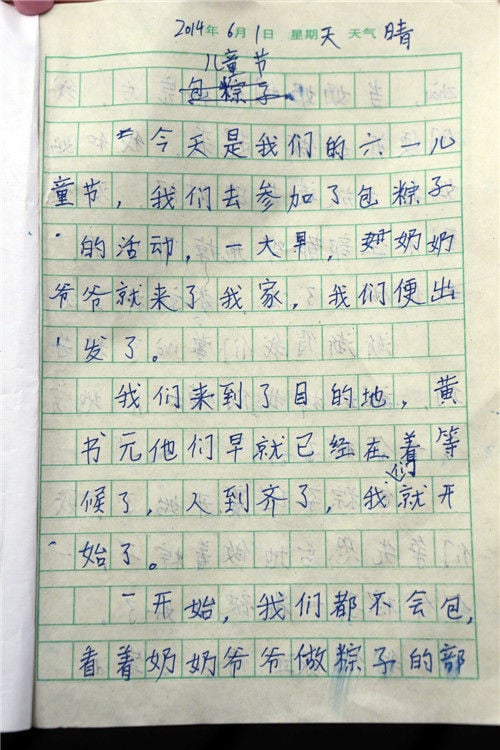 2014年6月1日 星期天 天气晴
儿童节
包粽子
今天是我们的六一儿
童节，我们去参加了包粽子
的活动，一大早，奶奶
爷爷就来了我家，我们便出
发了。
我们来到了目的地，黄
书元他们早就已经在着等
候了，人到齐了，我们就开
始了。
一开始，我们都不会包，
看着奶奶爷爷做粽子的部